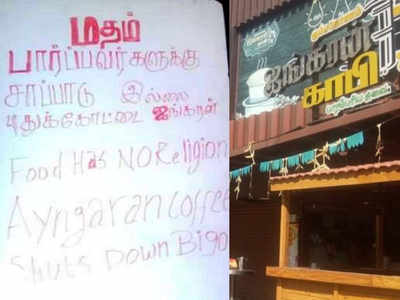 மதம்
பார்ப்பவர்களுக்கு
சாப்பாடு இல்லை
புதுக்கோட்டை ஐங்கரன்
Food Has NO Religion
Ayngaran Coffee
Shuts Down Bigo
ஐங்கரன்
காபி